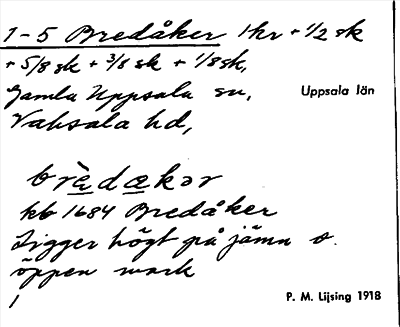 1-5 Bredåker 1hr + 1/2 sk
+ 5/8 sk + 3/8 sk + 1/8 sk,
Gamla Uppsala sn, Uppsala län
Vaksala hd,
brèdækər
hb 1684 Bredåker
Ligger högt på jämn o.
öppen mark
1
P. M. Lijsing 1918